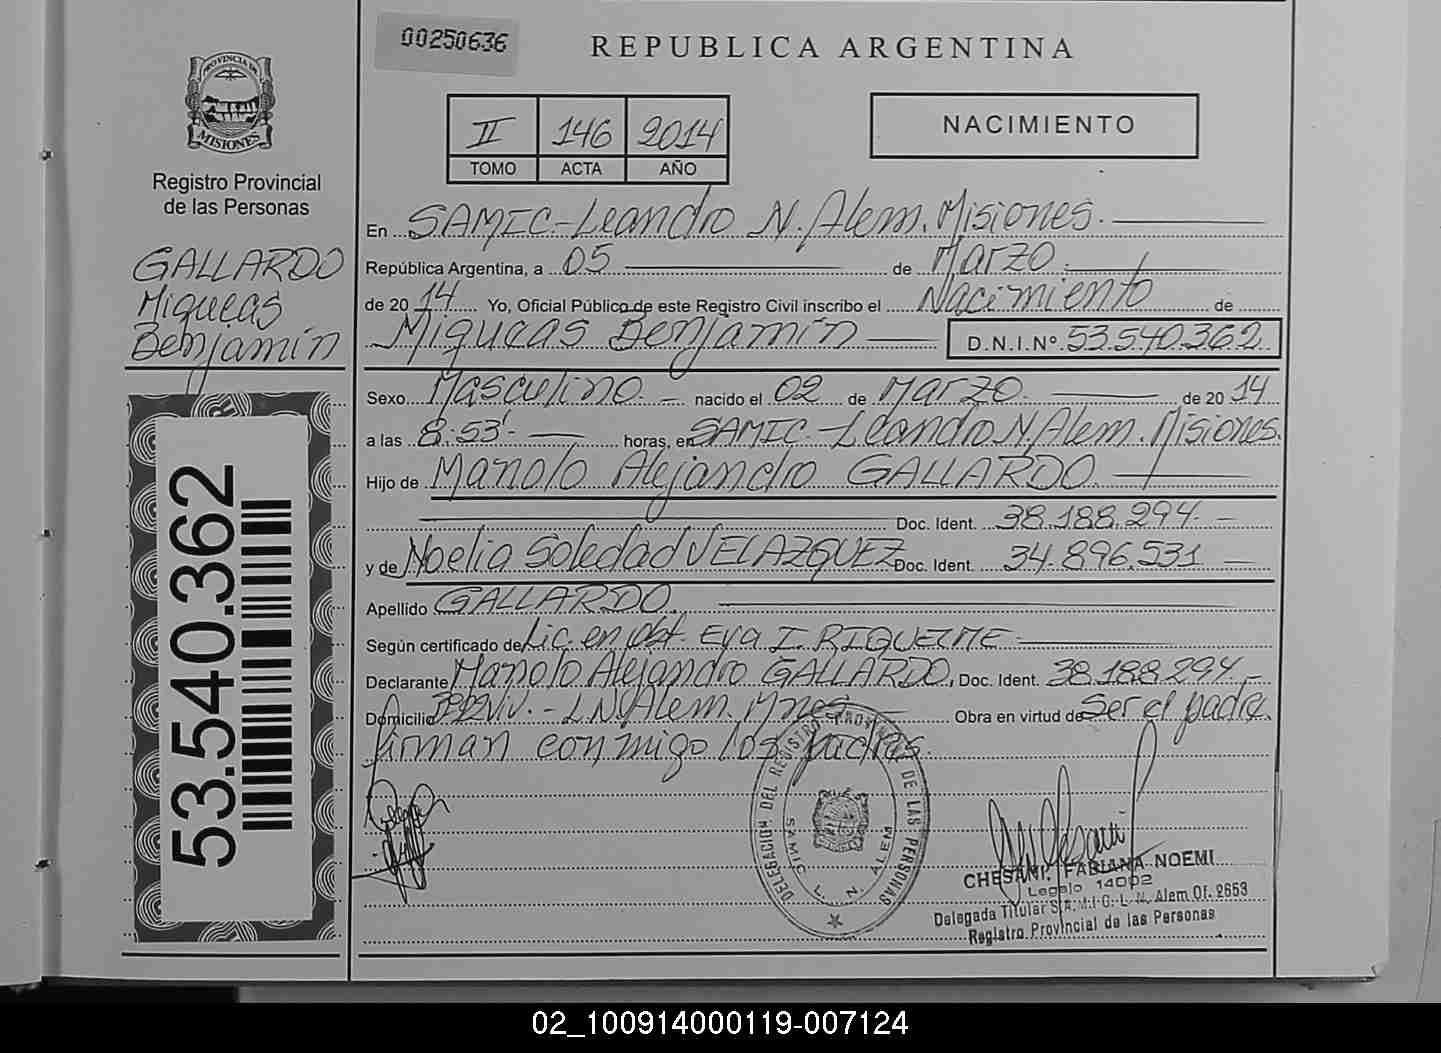 00250636
REPUBLICA ARGENTINA
PROVINCIA DE
MISIONES
II 146 2014
TOMO ACTA AÑO
NACIMIENTO
Registro Provincial
de las Personas
GALLARDO
Miqueas
Benjamín
En SAMIC-Leandro N. Alem. Misiones.
República Argentina, a 05 de Marzo
de 20 14 Yo, Oficial Público de este Registro Civil inscribo el Nacimiento de
Miqueas Benjamín D.N.I.Nº 53.540.362
Sexo Masculino. nacido el 02 de Marzo. de 20 14
a las 8:53'- horas, en SAMIC.-Leandro N. Alem. Misiones.
Hijo de Manolo Alejandro GALLARDO.
Doc. Ident. 38.188.294.-
y de Noelia Soledad VELAZQUEZ Doc. Ident. 34.896.531
Apellido GALLARDO.
Según certificado de Lic. en Obst. Eva I. RIQUELME
Declarante Manolo Alejandro GALLARDO, Doc. Ident. 38.188.294.-
Domicilio Viv.- L.N. Alem. Mnes Obra en virtud de Ser el padre.
firman conmigo los padres.
53.540.362
DELEGACION DEL REGISTRO PROVINCIAL DE LAS PERSONAS
SAMIC L. N. ALEM
CHESANI, FABIANA NOEMI
Legajo 14002
Delegada Titular S.A.M.I.C. L. N. Alem Of. 2653
Registro Provincial de las Personas
02_100914000119-007124